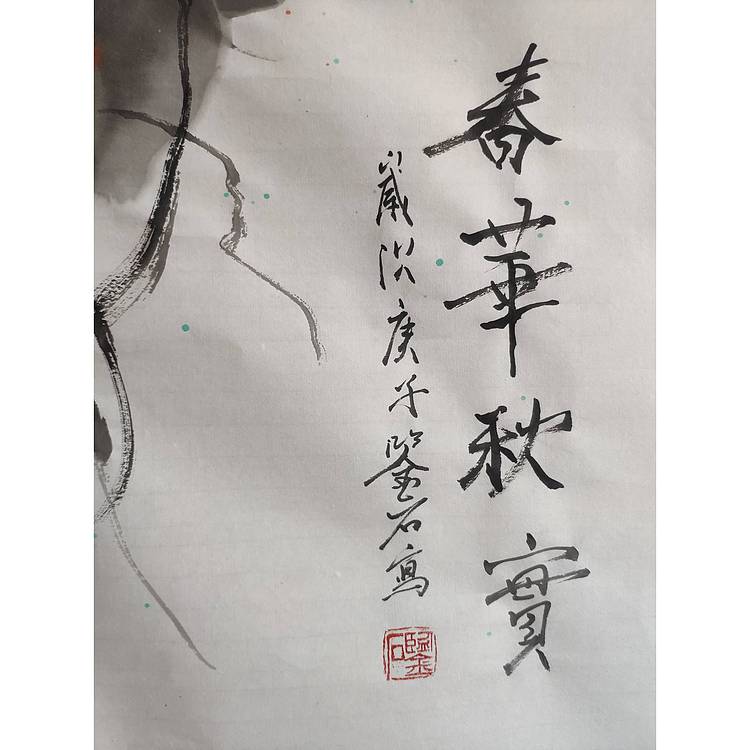 春華秋實
歲次庚子鑒石寫
鑒石